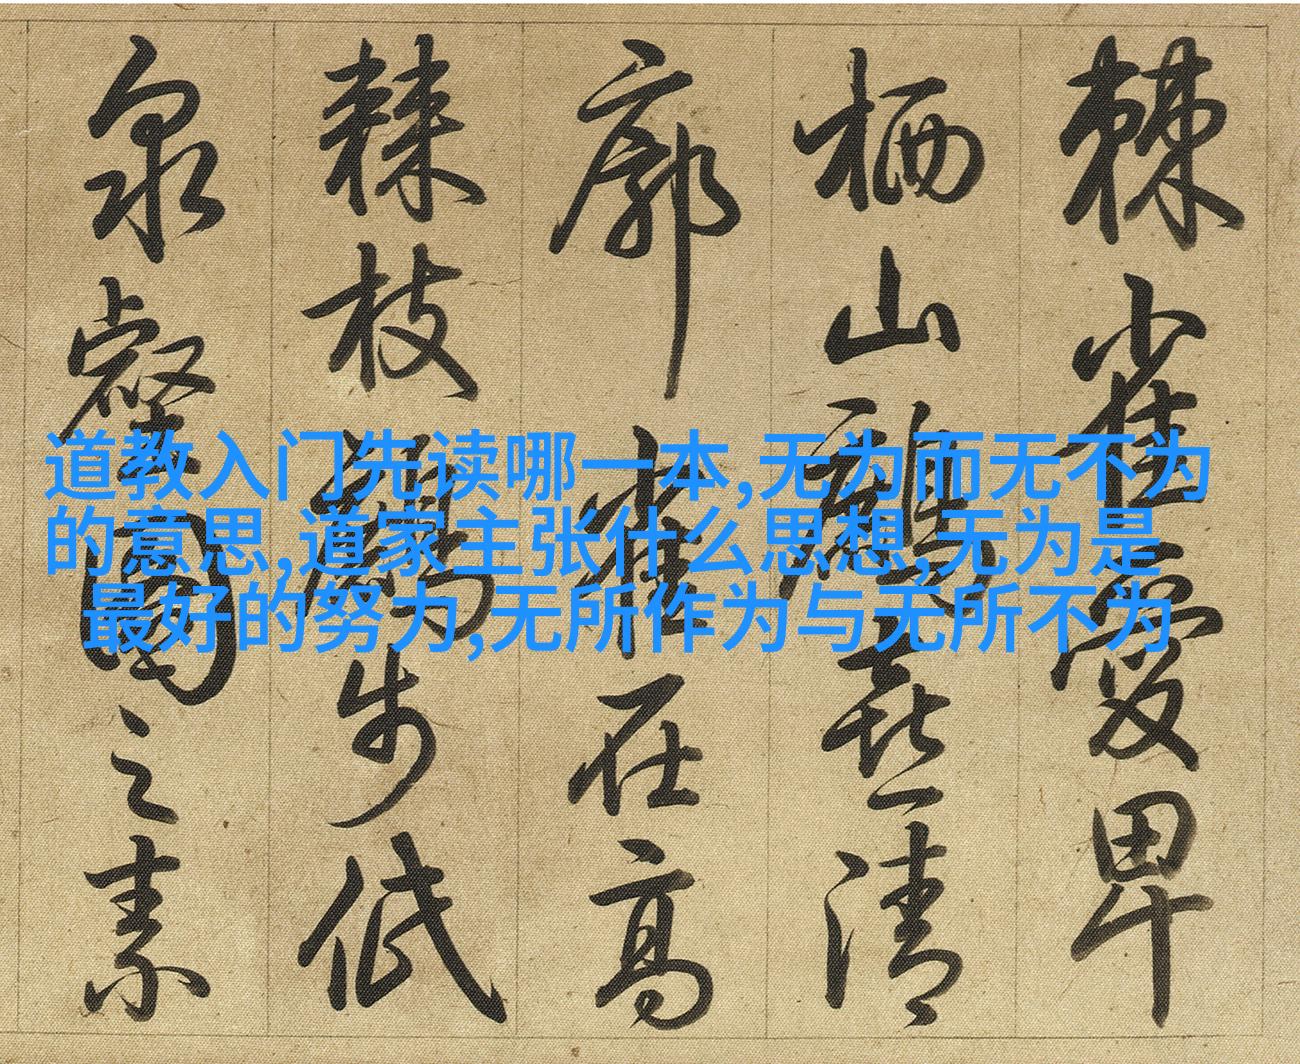 道教入门先读哪一本,无为而无不为
的意思,道家主张什么思想,无为是
最好的努力,无所作为与无所不为
棘雀愛卑
栖山喜清
廓雀在高
棘枝步低
泉之素